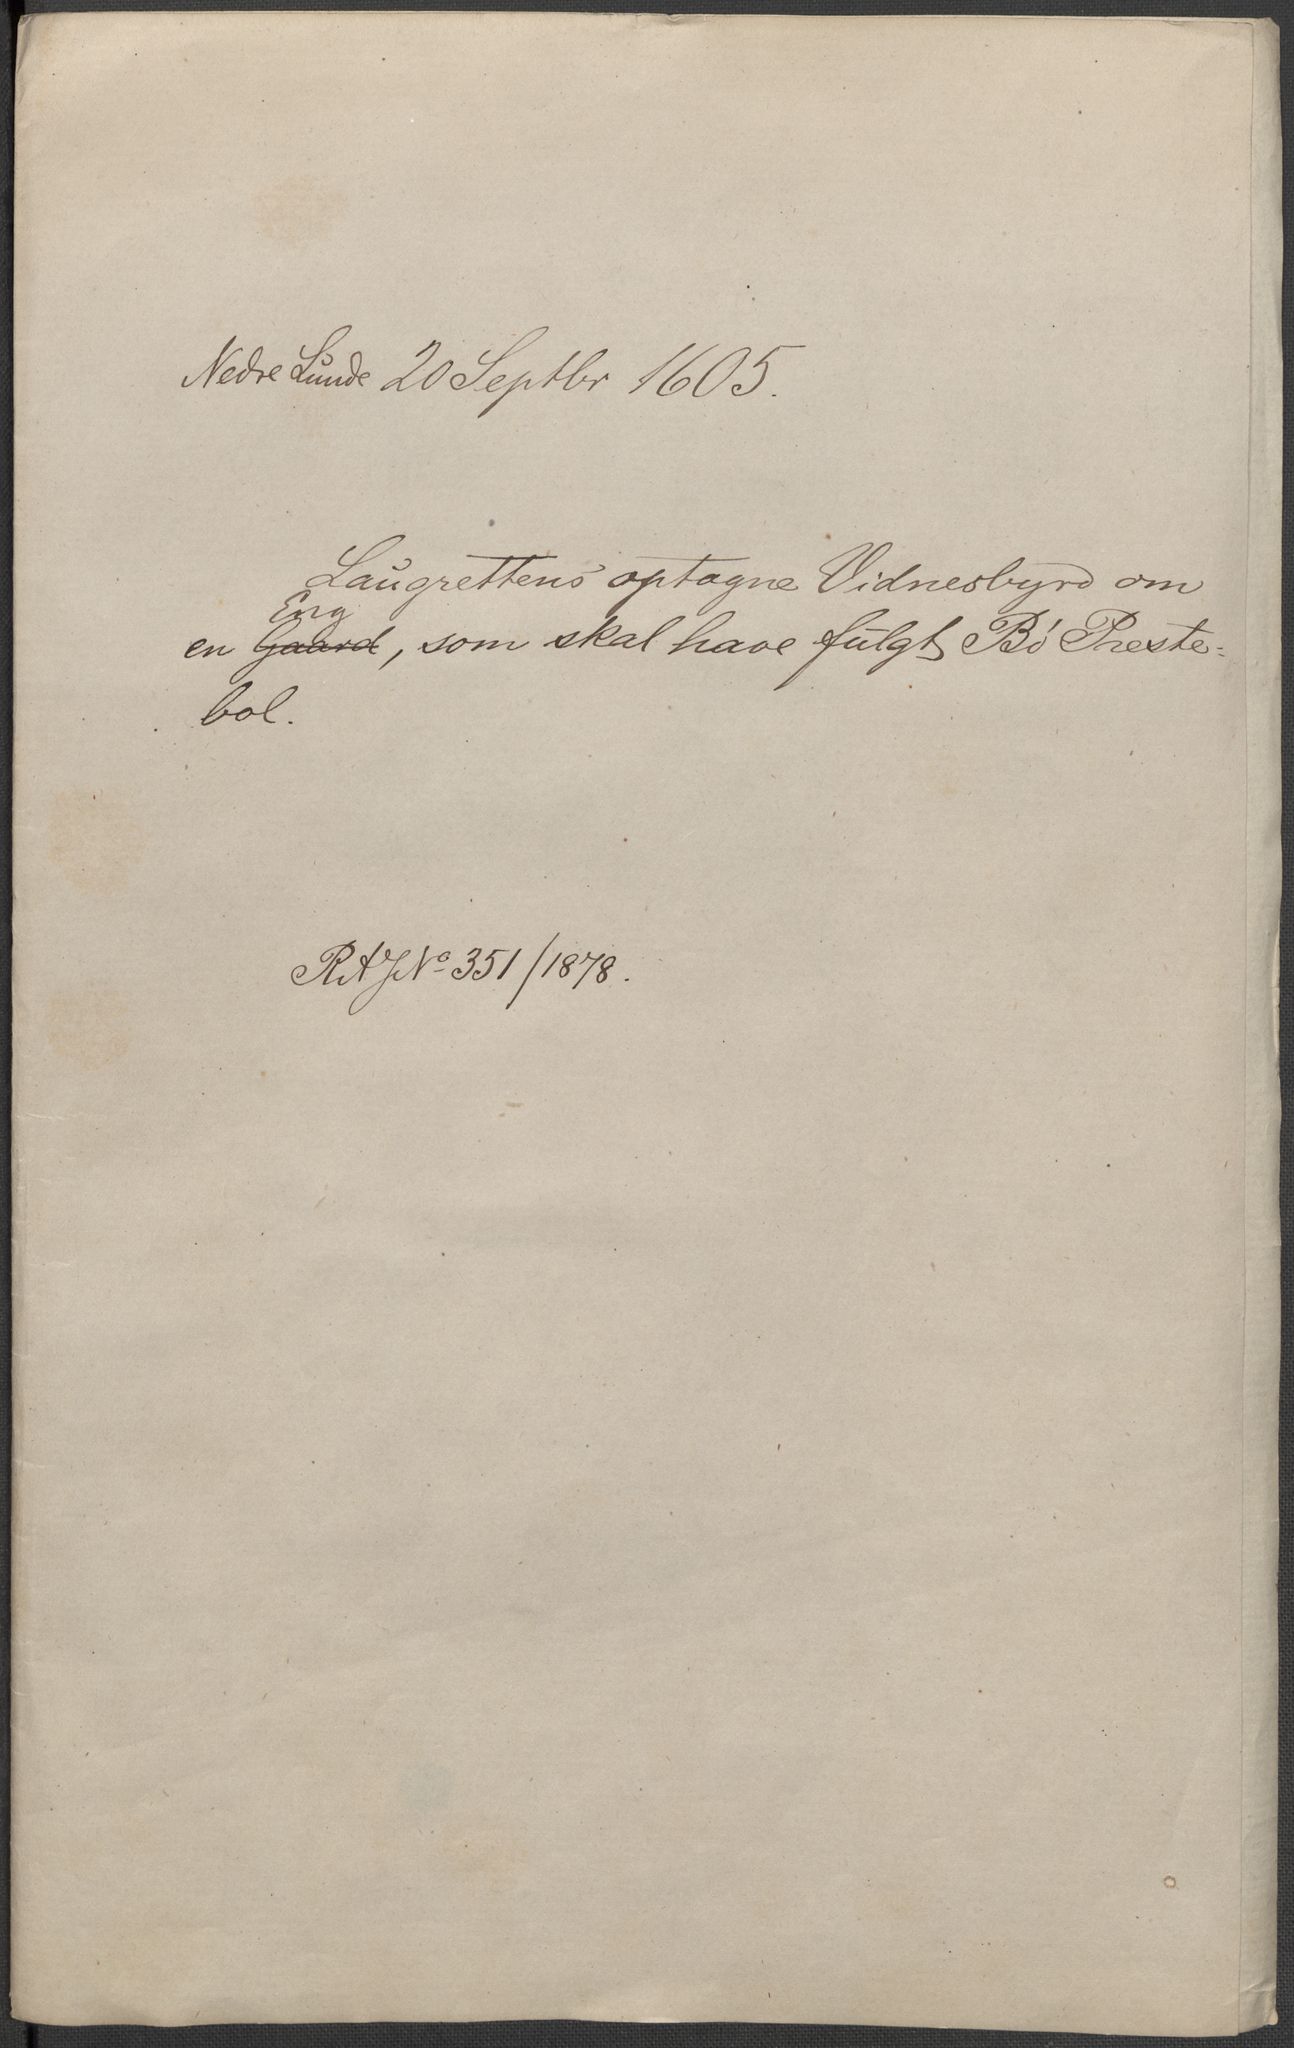 Nedre Lunde 20 Septbr 1605.
Laugrettens optagne Vidnesbyrd om
Eng
en Gaard, som skal have fulgt Bö Preste-
bol.
RA J No 351/1878.